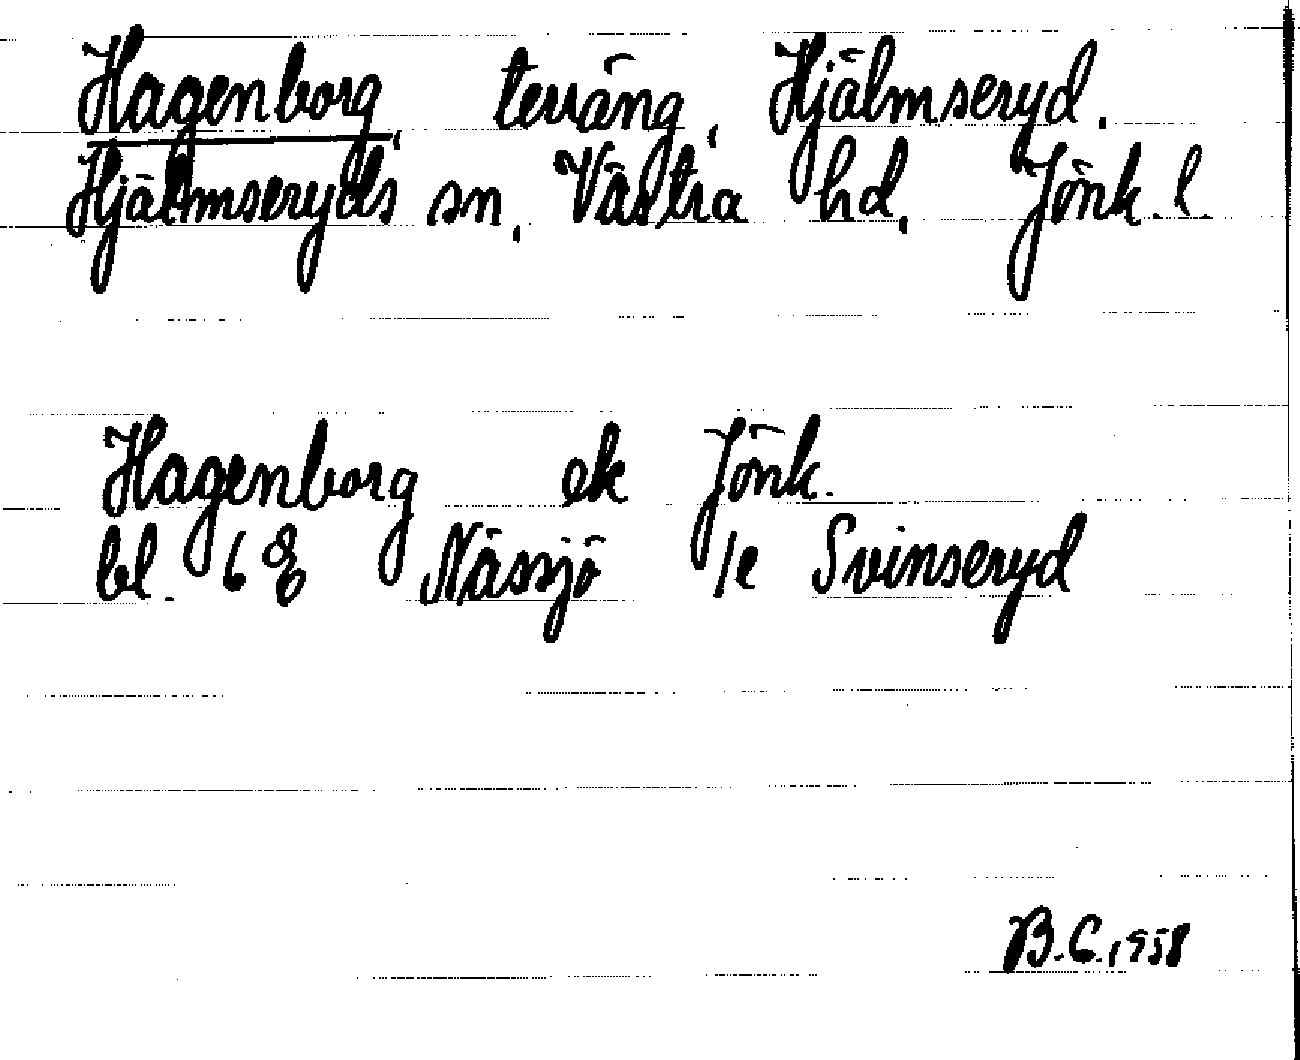 Hagenborg, terräng, Hjälmseryd.
Hjälmseryds sn, Västra hd, Jönk. l.
Hagenborg ek Jönk.
bl. 68 Nässjö /e Svinseryd
B.C. 1958